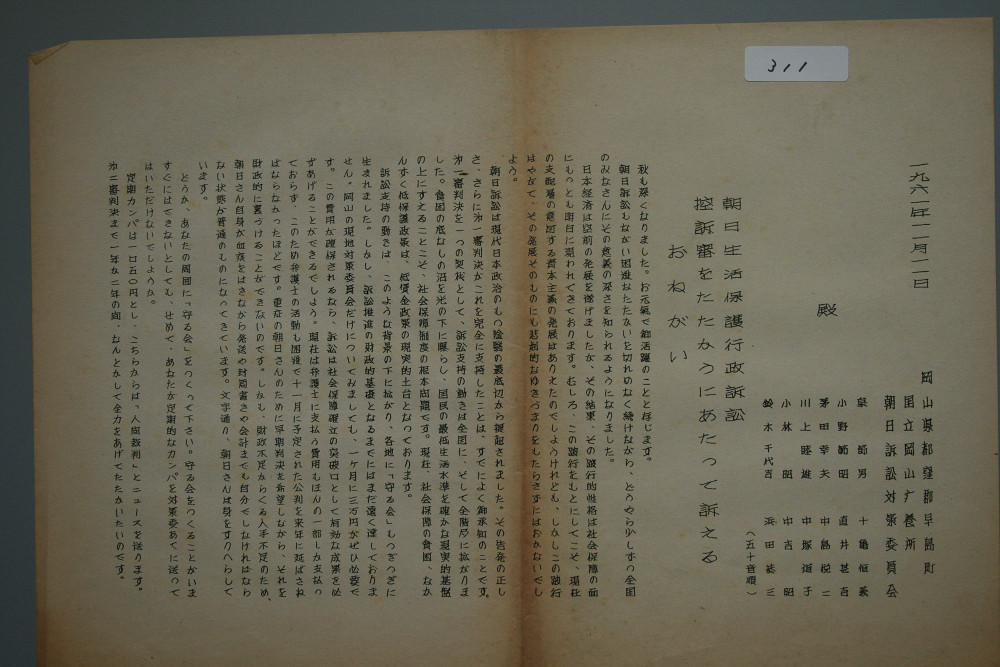 311
一九六一年十一月二日
殿
岡山県都窪郡早島町
国立岡山療養所
朝日訴訟対策委員会
泉 節男 十亀恒義
小野師昭 直井甚吉
茅田幸夫 中島悦二
川上睦雄 中塚道子
小林昭 中吉昭
鈴木千代吉 浜田藤三
（五十音順）
朝日生活保護行政訴訟
控訴審をたたかうにあたって訴える
おねがい
秋も深くなりました。お元気で御活躍のことと存じます。
朝日訴訟もながい困難なたたかいを切れめなく続けながら、どうやら少しずつ全国
のみなさんにその意義の深さを知られるようになりました。
日本経済は空前の発展を遂げましたが、その結果、その跛行的性格は社会保障の面
にもっとも明白に現われてきております。むしろ、この跛行をもとにしてこそ、現在
の支配層の意図する資本主義の発展はありえたのでしようけれども、しかしこの跛行
はやがて、その発展そのものにも悲劇的なゆきづまりをもたらさずにはおかないでし
よう。
朝日訴訟は現代日本政治のもつ陰翳の最底辺から提起されました。その告発の正し
さ、さらに沖一審判決がこれを完全に支持したことは、すでによく御承知のことです。
沖一審判決を一つの契機として、訴訟支持の動きは全国に、そして全階層に拡がりま
した。貧困の底なしの沼を光の下に曝らし、国民の最低生活水準を確かな現実的基盤
の上にすえることこそ、社会保障制度の根本問題です。現在、社会保障の貧困、なか
んずく低保護政策は、低賃金政策の現実的土台となっております。
訴訟支持の動きは、このような背景の下に拡がり、各地に「守る会」もつぎつぎに
生まれました。しかし、訴訟推進の財政的基礎となるまでにはまだ遠く達しておりま
せん。岡山の現地対策委員会だけについてみましても、一ヶ月に三万円がぜひ必要で
す。この費用が確保されるなら、訴訟は社会保障確立の突破口として有効な成果をめ
ずあげることができるでしよう。現在は弁護士に支払う費用もほんの一部しか支払っ
ておらず、このため弁護士の活動も困難で十一月に予定された公判を来年に延ばさね
ばならなかったほどです。重症の朝日さんのために早期判決を希望しながら、それを
財政的に裏づけることができないのです。しかも、財政不足からくる人手不足のため、
朝日さん自身が血痰をはきながら発送や封筒書きや会計までも自分でしなければなら
ない状態が普通のものになってきています。文字通り、朝日さんは身をすりへらして
います。
どうか、あなたの周囲に「守る会」をつくって下さい。守る会をつくることがいま
すぐにはできないとしても、せめて、あなたが定期的なカンパを対策委あてに送って
はいただけないでしょうか。
定期カンパは一口五〇円とし、こちらからは「人間裁判」とニュースを送ります。
沖二審判決まで一年か二年の間、なんとかして全力をあげてたたかいたいのです。